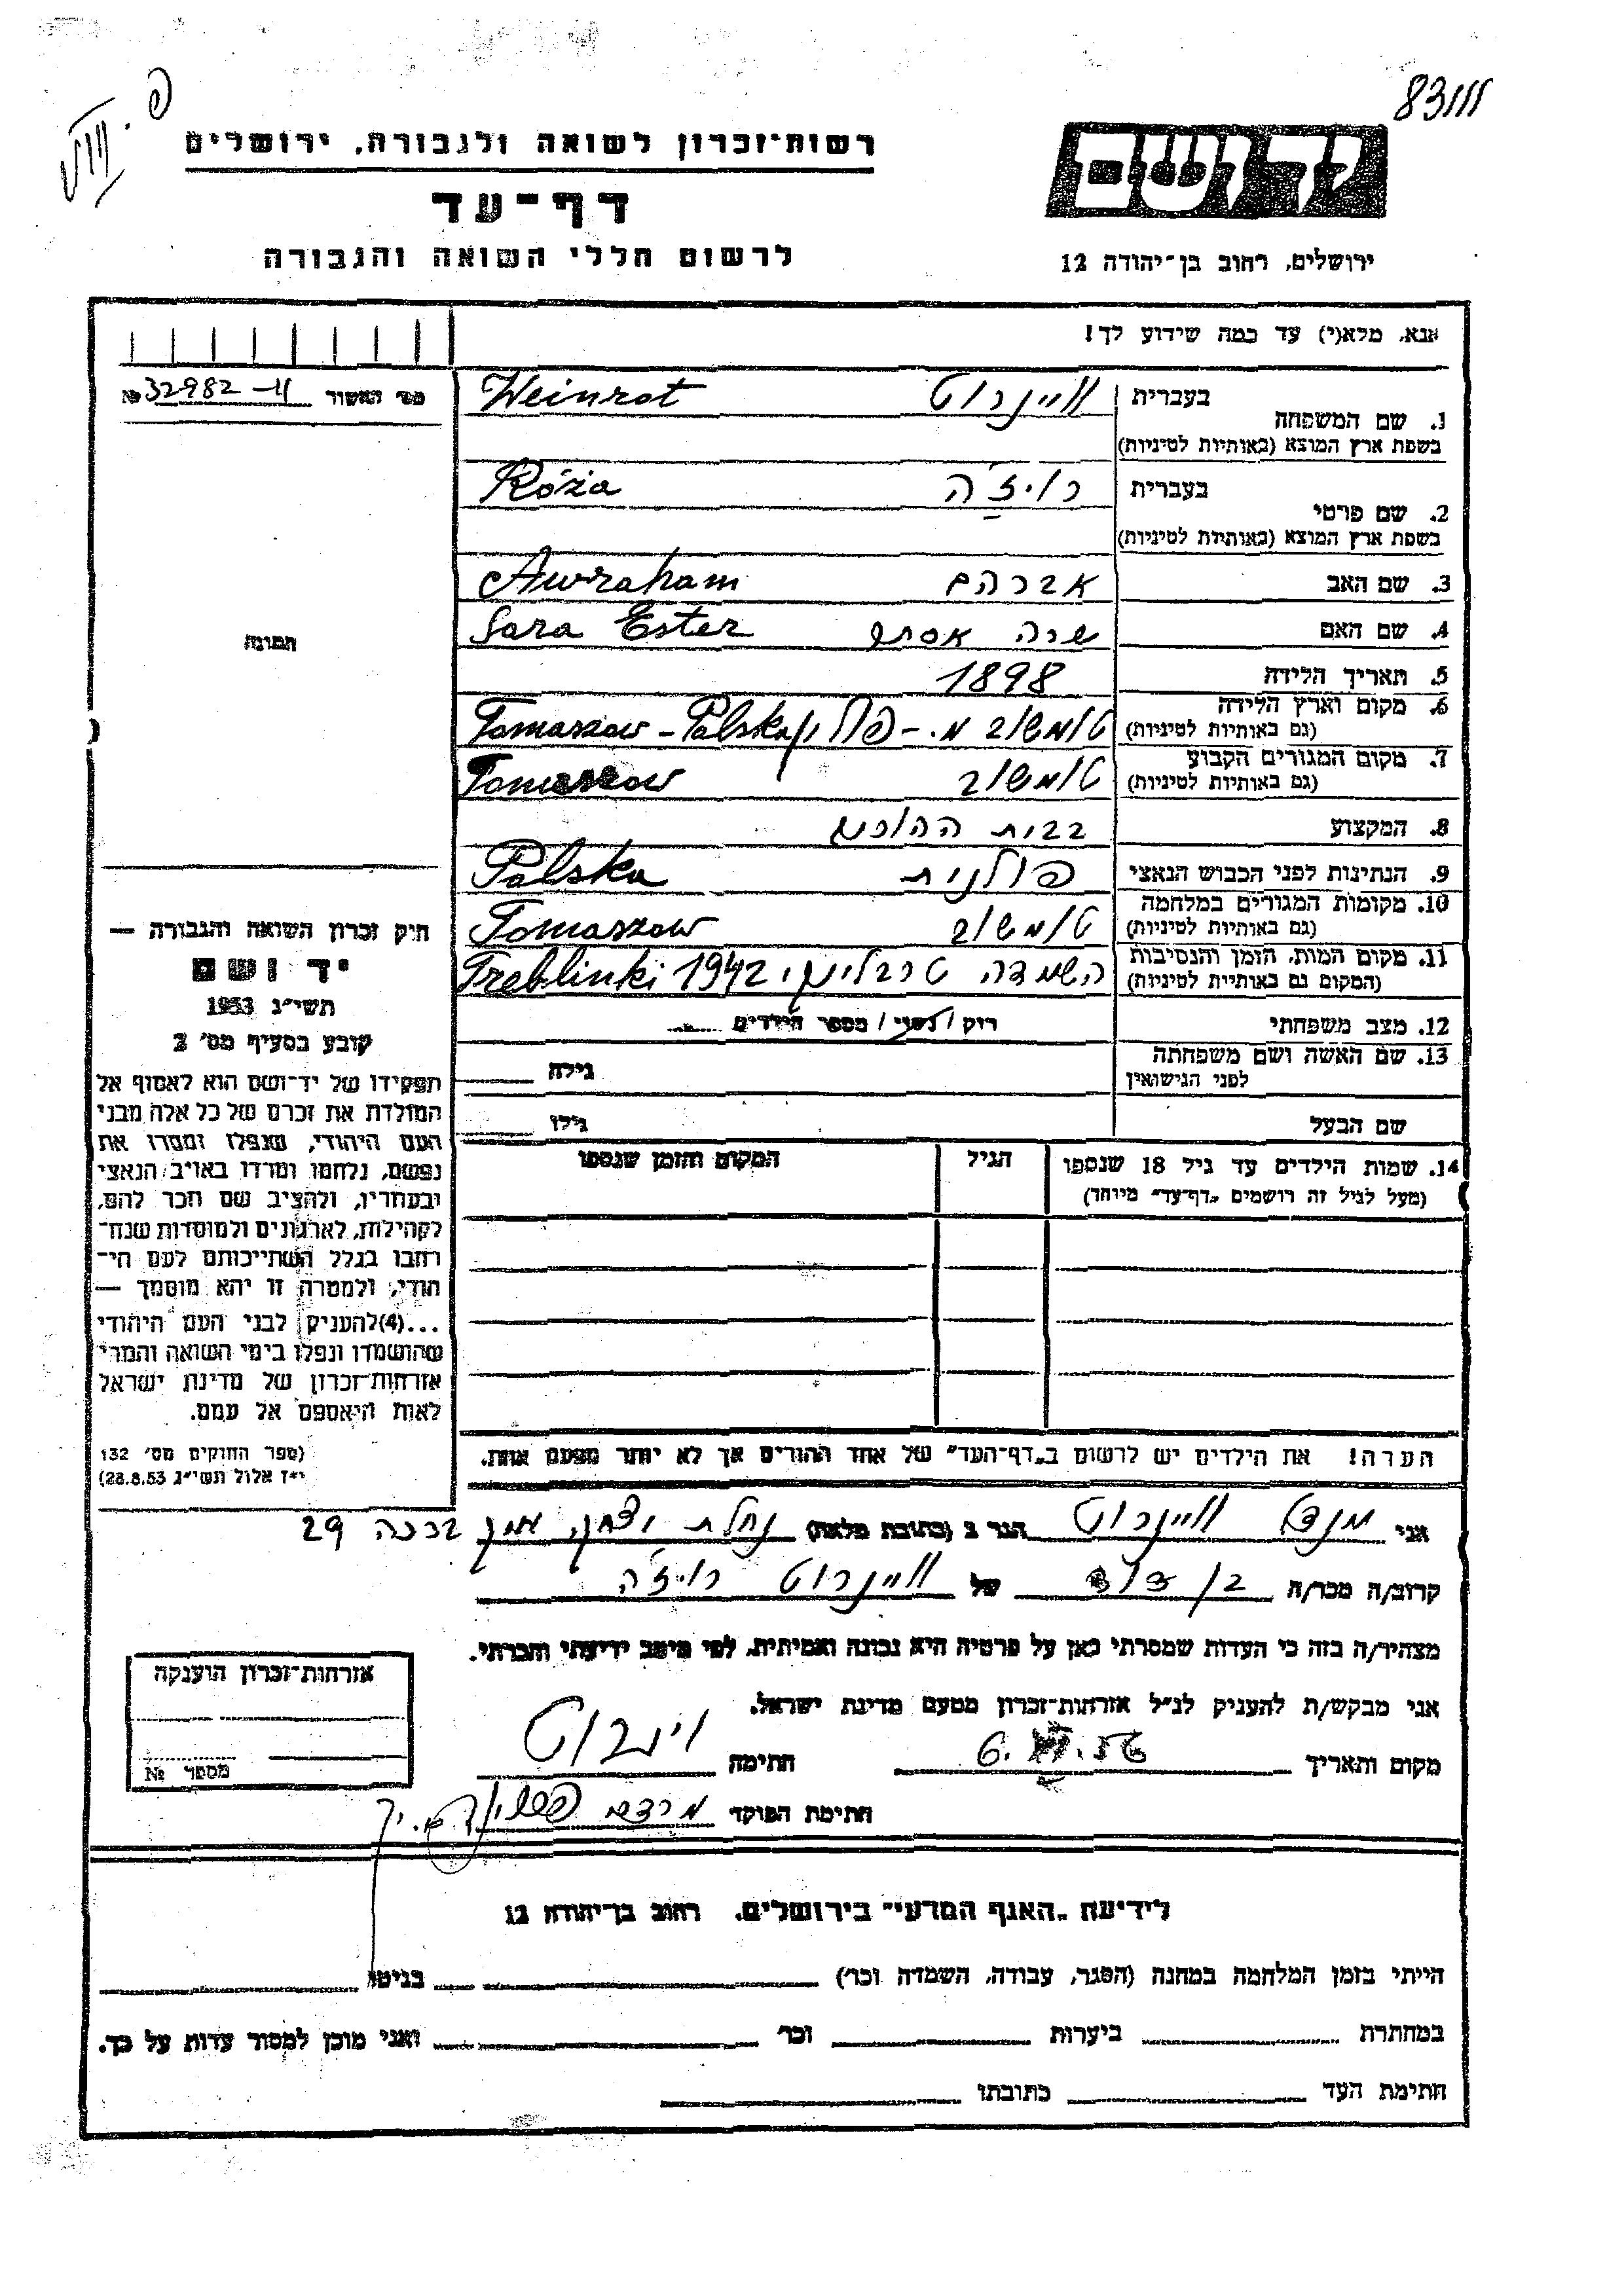 83111
יד ושם
רשות-זכרון לשואה ולגבורה, ירושלים
דף-עד
ירושלים, רחוב בן-יהודה 12
לרשום חללי השואה והגבורה
אנא, מלא(י) עד כמה שידוע לך!
מס' האשור № 32982-11
1. שם המשפחה בעברית ווינרוט Weinrot
בשפת ארץ המוצא (באותיות לטיניות)
2. שם פרטי בעברית רויז'ה Róża
בשפת ארץ המוצא (באותיות לטיניות)
3. שם האב אברהם Awraham
4. שם האם שרה אסתר Sara Ester
תמונה
5. תאריך הלידה 1898
6. מקום וארץ הלידה (גם באותיות לטיניות) טומשוב מ. - פולין Tomaszow - Polska
7. מקום המגורים הקבוע (גם באותיות לטיניות) טומשוב Tomaszow
8. המקצוע
9. הנתינות לפני הכבוש הנאצי פולנית Polska
10. מקומות המגורים במלחמה (גם באותיות לטיניות) טומשוב Tomaszow
11. מקום המות, הזמן והנסיבות (המקום גם באותיות לטיניות) השמדה טרבלינקי Treblinki 1942
12. מצב משפחתי רוק / נשוי / מספר הילדים
13. שם האשה ושם משפחתה לפני הנישואין גילה
שם הבעל גילו
14. שמות הילדים עד גיל 18 שנספו הגיל המקום והזמן שנספו
(מעל לגיל זה רושמים "דף-עד" מיוחד)
הערה! את הילדים יש לרשום ב"דף-העד" של אחד ההורים אך לא יותר מפעם אחת.
חוק זכרון השואה והגבורה —
יד ושם
תשי"ג 1953
קובע בסעיף מס' 2
תפקידו של יד-ושם הוא לאסוף אל
המולדת את זכרם של כל אלה מבני
העם היהודי, שנפלו ומסרו את
נפשם, נלחמו ומרדו באויב הנאצי
ובעוזריו, ולהציב שם וזכר להם,
לקהילות, לארגונים ולמוסדות שנח-
רבו בגלל השתייכותם לעם הי-
הודי, ולמטרה זו יהא מוסמך —
...(4) להעניק לבני העם היהודי
שהושמדו ונפלו בימי השואה והמרי
אזרחות-זכרון של מדינת ישראל
לאות היאספם אל עמם.
(ספר החוקים מס' 132
י"ז אלול תשי"ג 28.8.53)
אני ווינרוט הגר ב (כתובת מלאה) נחלת יצחק 29
קרוב/ה מכר/ה של ווינרוט רויז'ה
מצהיר/ה בזה כי העדות שמסרתי כאן על פרטיה היא נכונה ואמיתית, לפי מיטב ידיעתי והכרתי.
אני מבקש/ת להעניק לנ"ל אזרחות-זכרון מטעם מדינת ישראל.
מקום ותאריך חתימה וינרוט
חתימת הפוקד
אזרחות-זכרון הוענקה
מספר №
לידיעת "האגף המדעי" בירושלים, רחוב בן-יהודה 12
הייתי בזמן המלחמה במחנה (הסגר, עבודה, השמדה וכו') בגיטו
במחתרת ביערות וכו' ואני מוכן למסור עדות על כך.
חתימת העד כתובתו